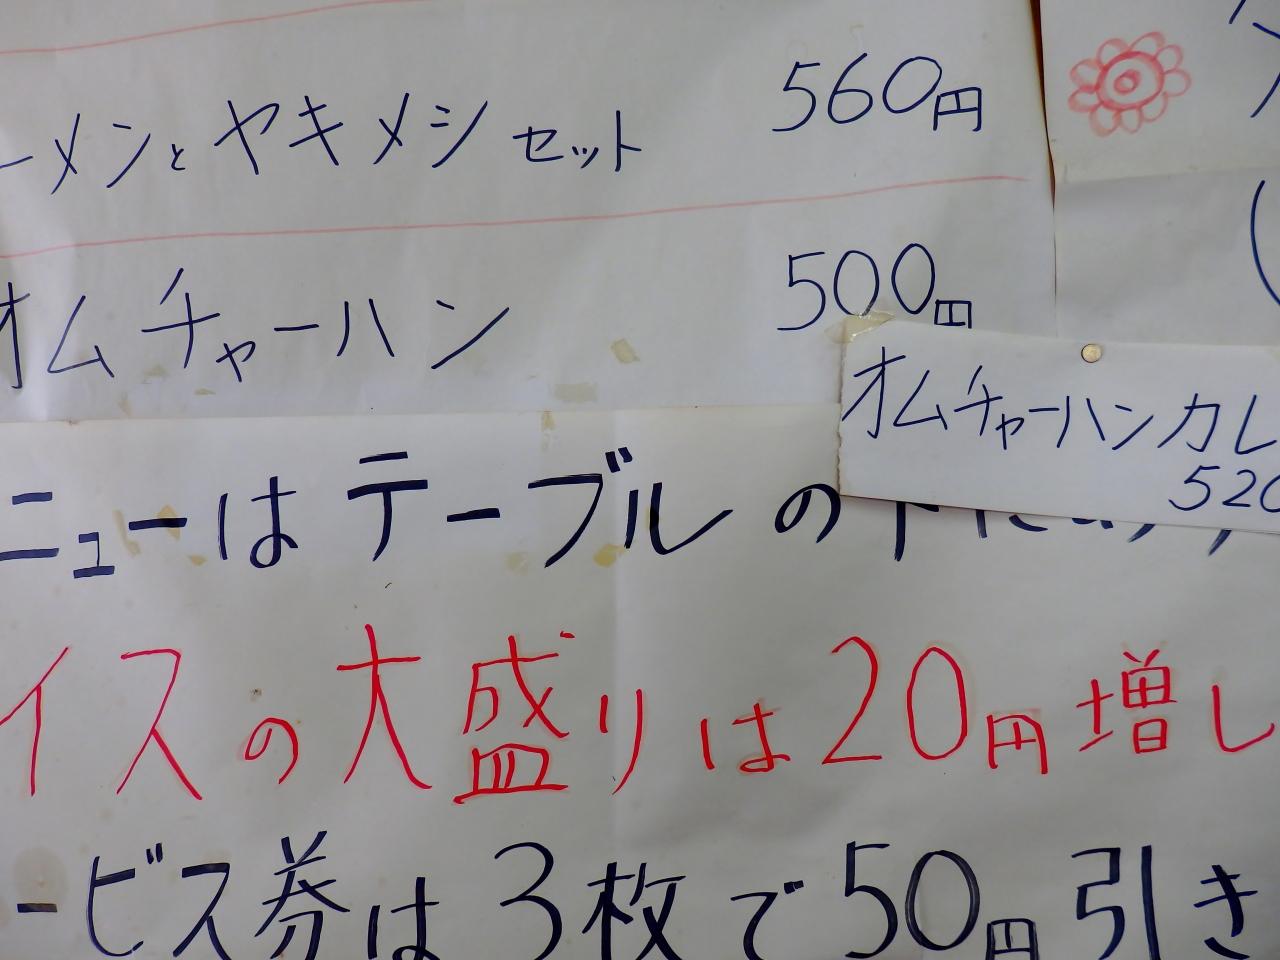 ーメンとヤキメシセット 560円
オムチャーハン 500円
オムチャーハンカレ
520
ニューはテーブルの
イスの大盛りは20円増し
ービス券は3枚で50円引き